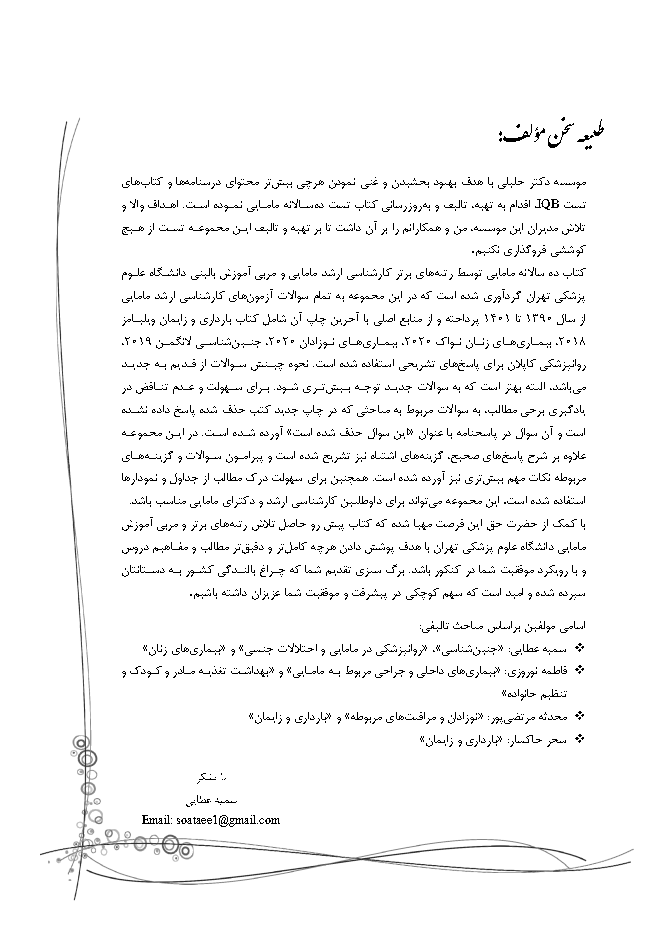 طلیعه سخن مؤلف:
موسسه دکتر خلیلی با هدف بهبود بخشیدن و غنی نمودن هرچی بیش‌تر محتوای درسنامه‌ها و کتاب‌های
تست IQB، اقدام به تهیه، تالیف و به‌روزرسانی کتاب تست ده‌سالانه مامایی نموده است. اهداف والا و
تلاش مدیران این موسسه، من و همکارانم را بر آن داشت تا بر تهیه و تالیف این مجموعه تست از هیچ
کوششی فروگذاری نکنیم.
کتاب ده سالانه مامایی توسط رتبه‌های برتر کارشناسی ارشد مامایی و مربی آموزش بالینی دانشگاه علوم
پزشکی تهران گردآوری شده است که در این مجموعه به تمام سوالات آزمون‌های کارشناسی ارشد مامایی
از سال ۱۳۹۰ تا ۱۴۰۱ پرداخته و از منابع اصلی با آخرین چاپ آن شامل کتاب بارداری و زایمان ویلیامز
۲۰۱۸، بیماری‌های زنان نواک ۲۰۲۰، بیماری‌های نوزادان ۲۰۲۰، جنین‌شناسی لانگمن ۲۰۱۹،
روانپزشکی کاپلان برای پاسخ‌های تشریحی استفاده شده است. نحوه چینش سوالات از قدیم به جدید
می‌باشد، البته بهتر است که به سوالات جدید توجه بیش‌تری شود. برای سهولت و عدم تناقض در
یادگیری برخی مطالب، به سوالات مربوط به مباحثی که در چاپ جدید کتب حذف شده پاسخ داده نشده
است و آن سوال در پاسخنامه با عنوان «این سوال حذف شده است» آورده شده است. در این مجموعه
علاوه بر شرح پاسخ‌های صحیح، گزینه‌های اشتباه نیز تشریح شده است و پیرامون سوالات و گزینه‌های
مربوطه نکات مهم بیش‌تری نیز آورده شده است. همچنین برای سهولت درک مطالب از جداول و نمودارها
استفاده شده است. این مجموعه می‌تواند برای داوطلبین کارشناسی ارشد و دکترای مامایی مناسب باشد.
با کمک از حضرت حق این فرصت مهیا شده که کتاب پیش رو حاصل تلاش رتبه‌های برتر و مربی آموزش
مامایی دانشگاه علوم پزشکی تهران با هدف پوشش دادن هرچه کامل‌تر و دقیق‌تر مطالب و مفاهیم دروس
و با رویکرد موفقیت شما در کنکور باشد. برگ سبزی تقدیم شما که چراغ بالندگی کشور به دستانتان
سپرده شده و امید است که سهم کوچکی در پیشرفت و موفقیت شما عزیزان داشته باشیم.
اسامی مولفین براساس مباحث تالیفی:
❖ سمیه عطایی: «جنین‌شناسی»، «روانپزشکی در مامایی و اختلالات جنسی» و «بیماری‌های زنان»
❖ فاطمه نوروزی: «بیماری‌های داخلی و جراحی مربوط به مامایی» و «بهداشت تغذیه مادر و کودک و
تنظیم خانواده»
❖ محدثه مرتضی‌پور: «نوزادان و مراقبت‌های مربوطه» و «بارداری و زایمان»
❖ سحر خاکسار: «بارداری و زایمان»
با تشکر
سمیه عطایی
Email: soataee1@gmail.com